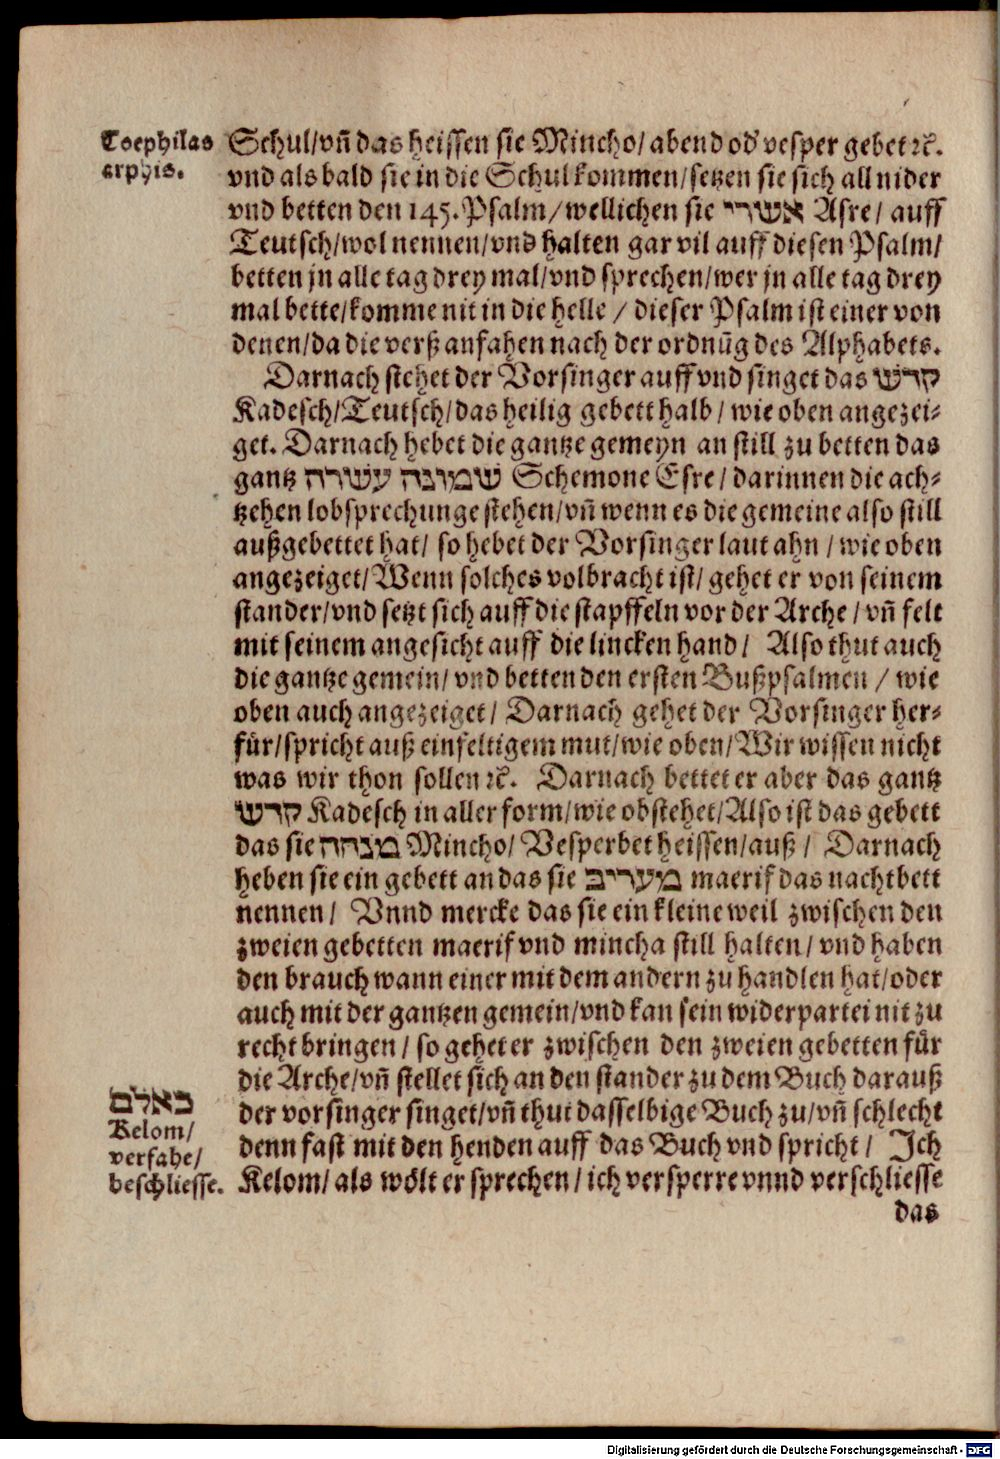 Toephilas
arphis.
Schul/vñ das heissen sie Mincho/ abend od' vesper gebet ꝛc.
vnd als bald sie in die Schul kommen/setzen sie sich all nider
vnd betten den 145. Psalm/wellichen sie אשרי Asre/ auff
Teutsch/wol nennen/vnd halten gar vil auff diesen Psalm/
betten jn alle tag drey mal/vnd sprechen/wer jn alle tag drey
mal bette/komme nit in die helle / dieser Psalm ist einer von
denen/da die verß anfahen nach der ordnūg des Alphabets.
Darnach stehet der Vorsinger auff vnd singet das קדש
Kadesch/Teutsch/das heilig gebett halb/ wie oben angezei⸗
get. Darnach hebet die gantze gemeyn an still zu betten das
gantz שמונה עשרה Schemone Esre/ darinnen die ach⸗
tzehen lobsprechunge stehen/vñ wenn es die gemeine also still
außgebettet hat/ so hebet der Vorsinger laut ahn / wie oben
angezeiget/Wenn solches volbracht ist/ gehet er von seinem
stander/vnd setzt sich auff die stapffeln vor der Arche / vñ felt
mit seinem angesicht auff die lincken hand/ Also thut auch
die gantze gemein/ vnd betten den ersten Bußpsalmen / wie
oben auch angezeiget/ Darnach gehet der Vorsinger her⸗
für/spricht auß einfeltigem mut/wie oben/Wir wissen nicht
was wir thon sollen ꝛc. Darnach bettet er aber das gantz
קדש Kadesch in aller form/wie obstehet/Also ist das gebett
das sie מנחה Mincho/ Vesperbet heissen/auß/ Darnach
heben sie ein gebett an das sie מעריב maerif das nachtbett
nennen/ Vnnd mercke das sie ein kleine weil zwischen den
zweien gebetten maerif vnd mincha still halten/ vnd haben
den brauch wann einer mit dem andern zu handlen hat/oder
auch mit der gantzen gemein/vnd kan sein widerpartei nit zu
recht bringen/ so gehet er zwischen den zweien gebetten für
die Arche/vñ stellet sich an den stander zu dem Buch darauß
der vorsinger singet/vñ thut dasselbige Buch zu/vñ schlecht
denn fast mit den henden auff das Buch vnd spricht/ Ich
Kelom/ als wölt er sprechen/ich versperre vnnd verschliesse
באלם
Kelom/
verfahe/
beschliesse.
das
Digitalisierung gefördert durch die Deutsche Forschungsgemeinschaft - DFG